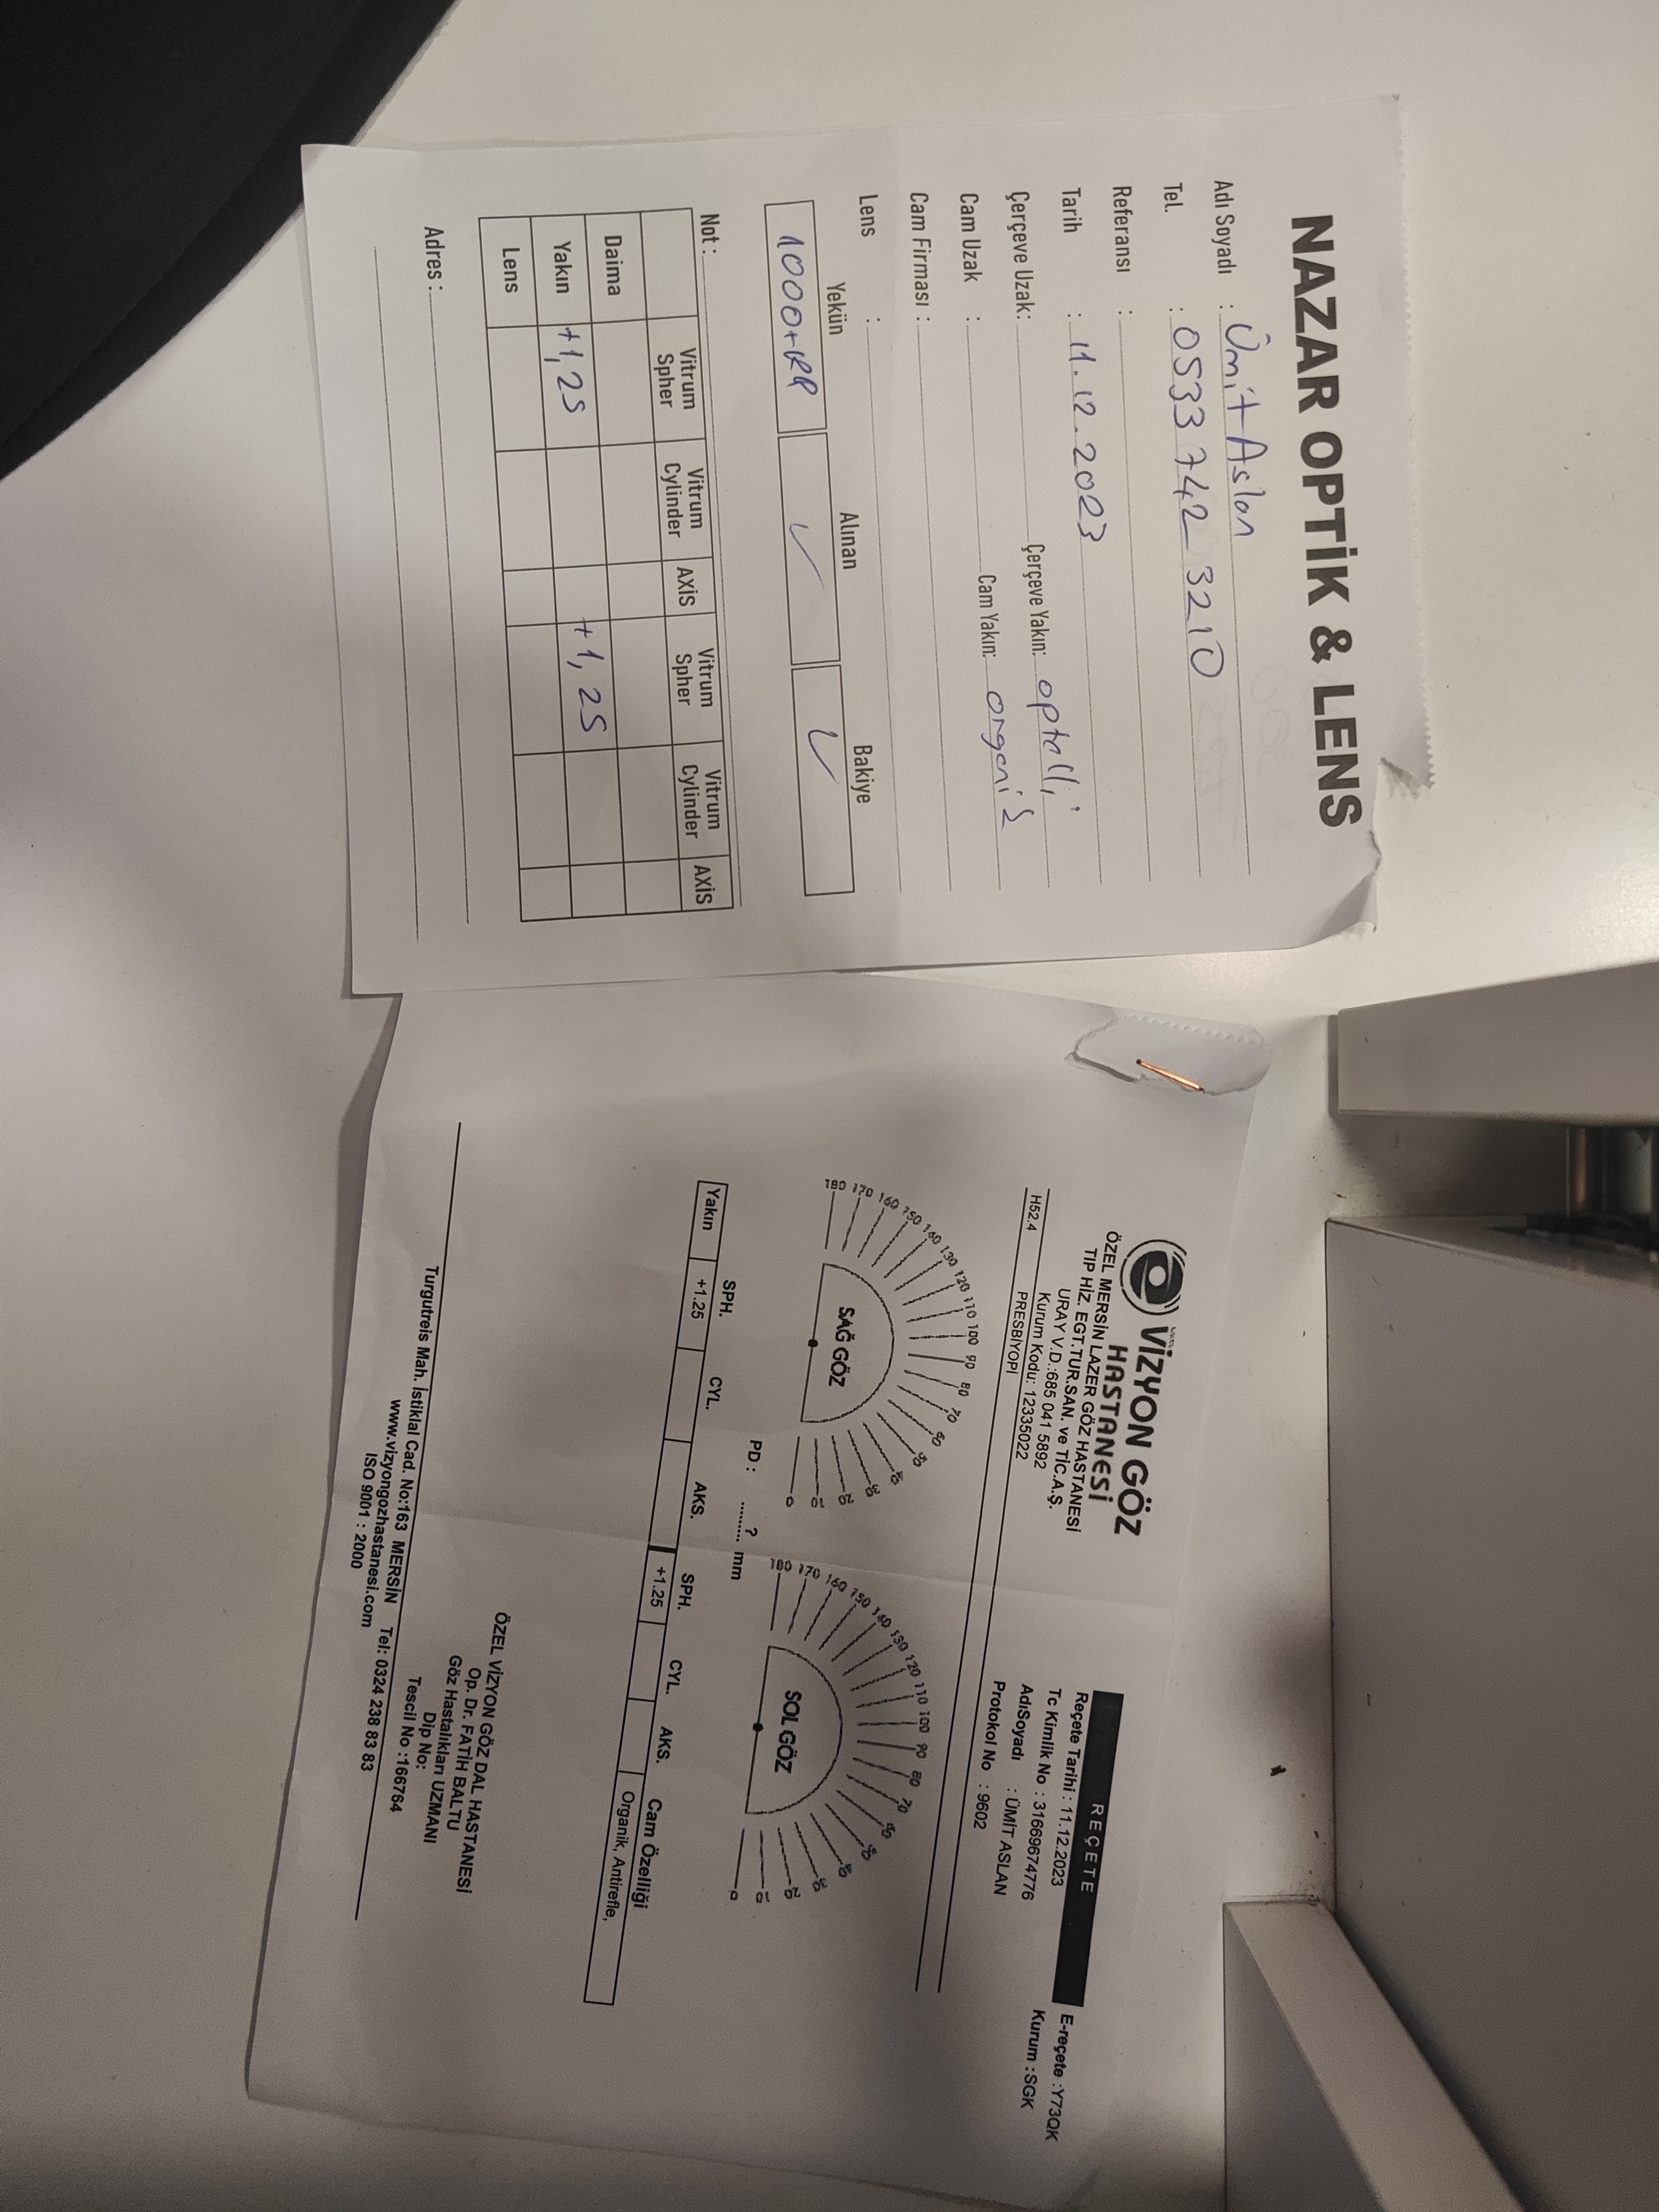 NAZAR OPTİK & LENS
Adı Soyadı : Ümit Aslan
Tel. : 0533 742 3210
Referansı :
Tarih : 11.12.2023
Çerçeve Uzak: Çerçeve Yakın: optelli
Cam Uzak : Cam Yakın: organik
Cam Firması :
Lens :
Yekün Alınan Bakiye
1000+RP
Not :
Vitrum Spher Vitrum Cylinder AXİS Vitrum Spher Vitrum Cylinder AXİS
Daima
Yakın +1,25 +1,25
Lens
Adres :
VİZYON GÖZ
HASTANESİ
ÖZEL MERSİN LAZER GÖZ HASTANESİ
TIP HİZ. EGT.TUR.SAN. ve TİC.A.Ş.
URAY V.D.:685 041 5892
Kurum Kodu: 12335022
REÇETE
Reçete Tarihi : 11.12.2023 E-reçete :Y73QK
Tc Kimlik No : 31669674776 Kurum :SGK
AdıSoyadı : ÜMİT ASLAN
Protokol No : 9602
H52.4 PRESBİYOPİ
180 170 160 150 140 130 120 110 100 90 80 70 60 50 40 30 20 10 0
SAĞ GÖZ
180 170 160 150 140 130 120 110 100 90 80 70 60 50 40 30 20 10 0
SOL GÖZ
PD : ........ ? ........ mm
SPH. CYL. AKS. SPH. CYL. AKS. Cam Özelliği
Yakın +1.25 +1.25 Organik, Antirefle,
ÖZEL VİZYON GÖZ DAL HASTANESİ
Op. Dr. FATİH BALTU
Göz Hastalıkları UZMANI
Dip No:
Tescil No :166764
Turgutreis Mah. İstiklal Cad. No:163 MERSİN Tel: 0324 238 83 83
www.vizyongozhastanesi.com
ISO 9001 : 2000